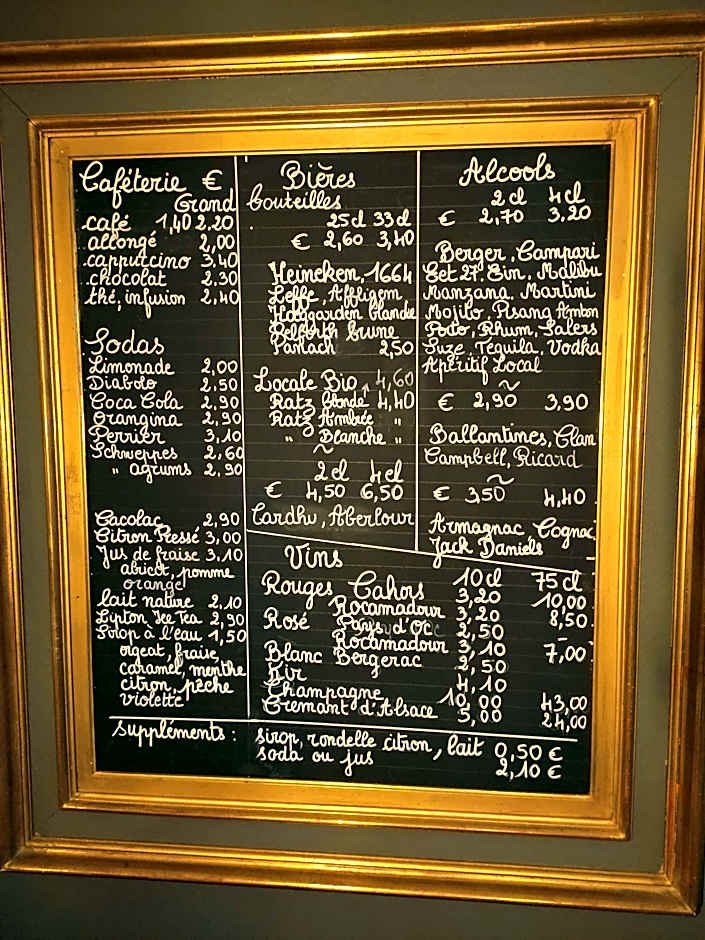 Caféterie €
Grand
café 1,40 2.20
allongé 2,00
cappuccino 3,40
chocolat 2.30
thé, infusion 2,40
Sodas
Limonade 2,00
Diabolo 2.50
Coca Cola 2,90
Orangina 2,90
Perrier 3,10
Schweppes 2,60
" agrums 2,90
Cacolac 2,90
Citron Pressé 3,00
Jus de fraise 3,10
abricot, pomme
orange
lait nature 2,10
Lipton Ice Tea 2,90
Sirop à l'eau 1,50
orgeat, fraise,
caramel, menthe
citron, pêche
violette
Bières
bouteilles
25cl 33cl
€ 2,60 3,40
Heineken, 1664
Leffe, Affligem
Hoegaarden blanche
Pelforth brune
Panach 2,50
Locale Bio 4,60
Ratz blonde 4,40
Ratz Ambrée "
" Blanche "
~
2cl 4cl
€ 4,50 6,50
Cardhu, Aberlour
Alcools
2cl 4cl
€ 2,70 3.20
Berger, Campari
Get 27 Gin, Malibu
Manzana, Martini
Mojito, Pisang Ambon
Porto, Rhum, Salers
Suze, Tequila, Vodka
Apéritif Local
~
€ 2,90 3,90
Ballantines, Clan
Campbell, Ricard
~
€ 3,50 4,40
Armagnac Cognac
Jack Daniels
Vins
10cl 75cl
Rouges Cahors 3,20 10,00
Rocamadour 3,20 8,50
Rosé Pays d'Oc 2,50 –
Rocamadour 3,10 7,00
Blanc Bergerac 2,50
Kir 4,10
Champagne 10,00 43,00
Cremant d'Alsace 5,00 24,00
suppléments : sirop, rondelle citron, lait 0,50 €
soda ou jus 2,10 €